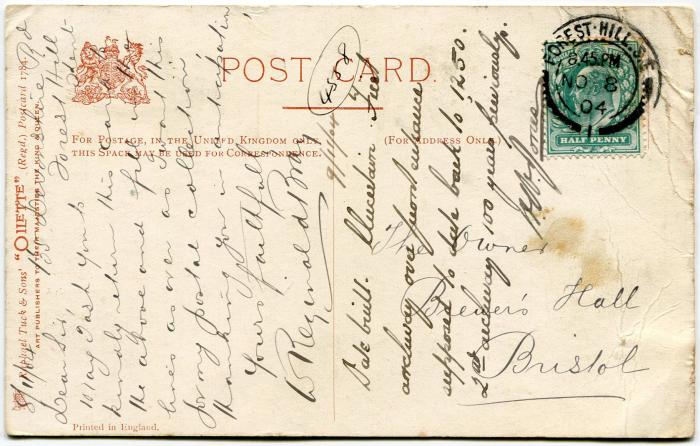 POST CARD.
FOR POSTAGE, IN THE UNITED KINGDOM ONLY,
THIS SPACE MAY BE USED FOR CORRESPONDENCE.
(FOR ADDRESS ONLY.)
4508
FOREST-HILL.S.E
8.45 PM
NO 8
04
HALF PENNY
Raphael Tuck & Sons' "OILETTE" (Regd.) Postcard 1784.
ART PUBLISHERS TO THEIR MAJESTIES THE KING & QUEEN.
Printed in England.
8/11/04
Forest Hill
Dear Sir,
May I ask you to
kindly return this card to
the above and fill in the
lines as over as I want this
for my postal collection
Thanking you in anticipation
Yours faithfully
W Reginald Bray
The Owner
Brewer's Hall
Bristol
Date built
archway over front entrance
supposed to date back to 1250.
2nd archway 100 years previously.